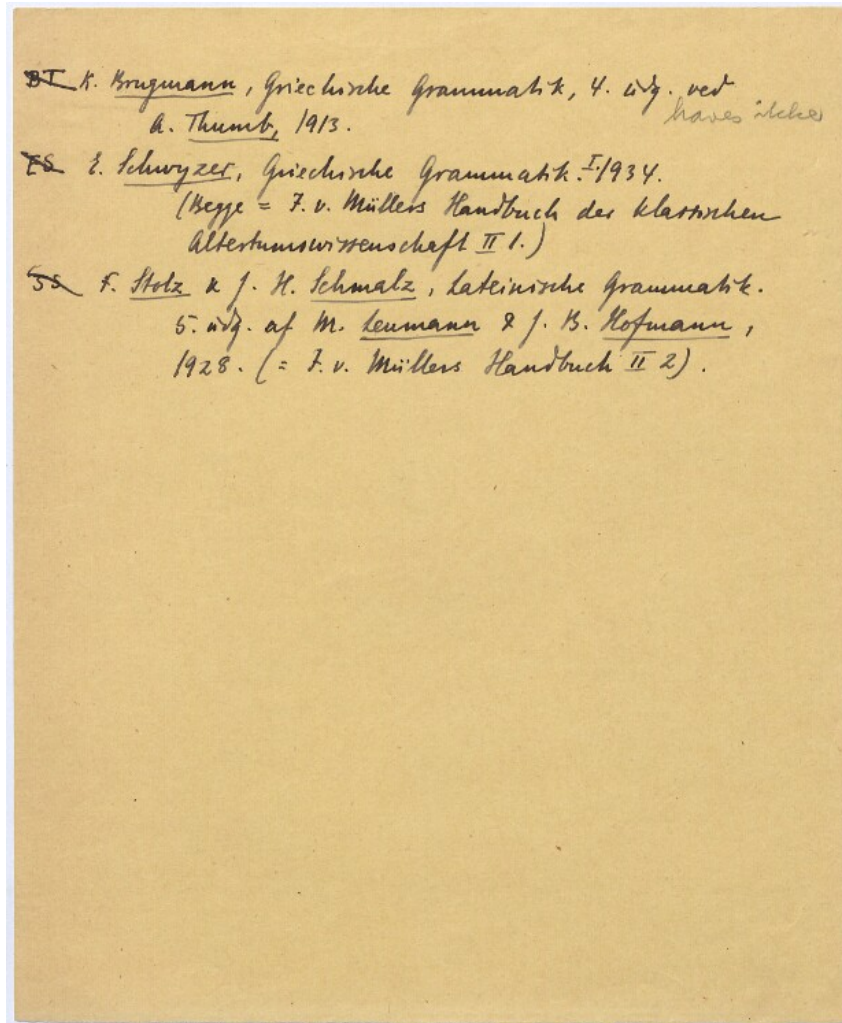 BT K. Brugmann, Griechische Grammatik, 4. udg. ved
haves ikke
A. Thumb, 1913.
ES E. Schwyzer, Griechische Grammatik. I. 1934.
(Begge = I. v. Müllers Handbuch der klassischen
Altertumswissenschaft II 1.)
SS F. Stolz & J. H. Schmalz, Lateinische Grammatik.
5. udg. af M. Leumann & J. B. Hofmann,
1928. (= I. v. Müllers Handbuch II 2).